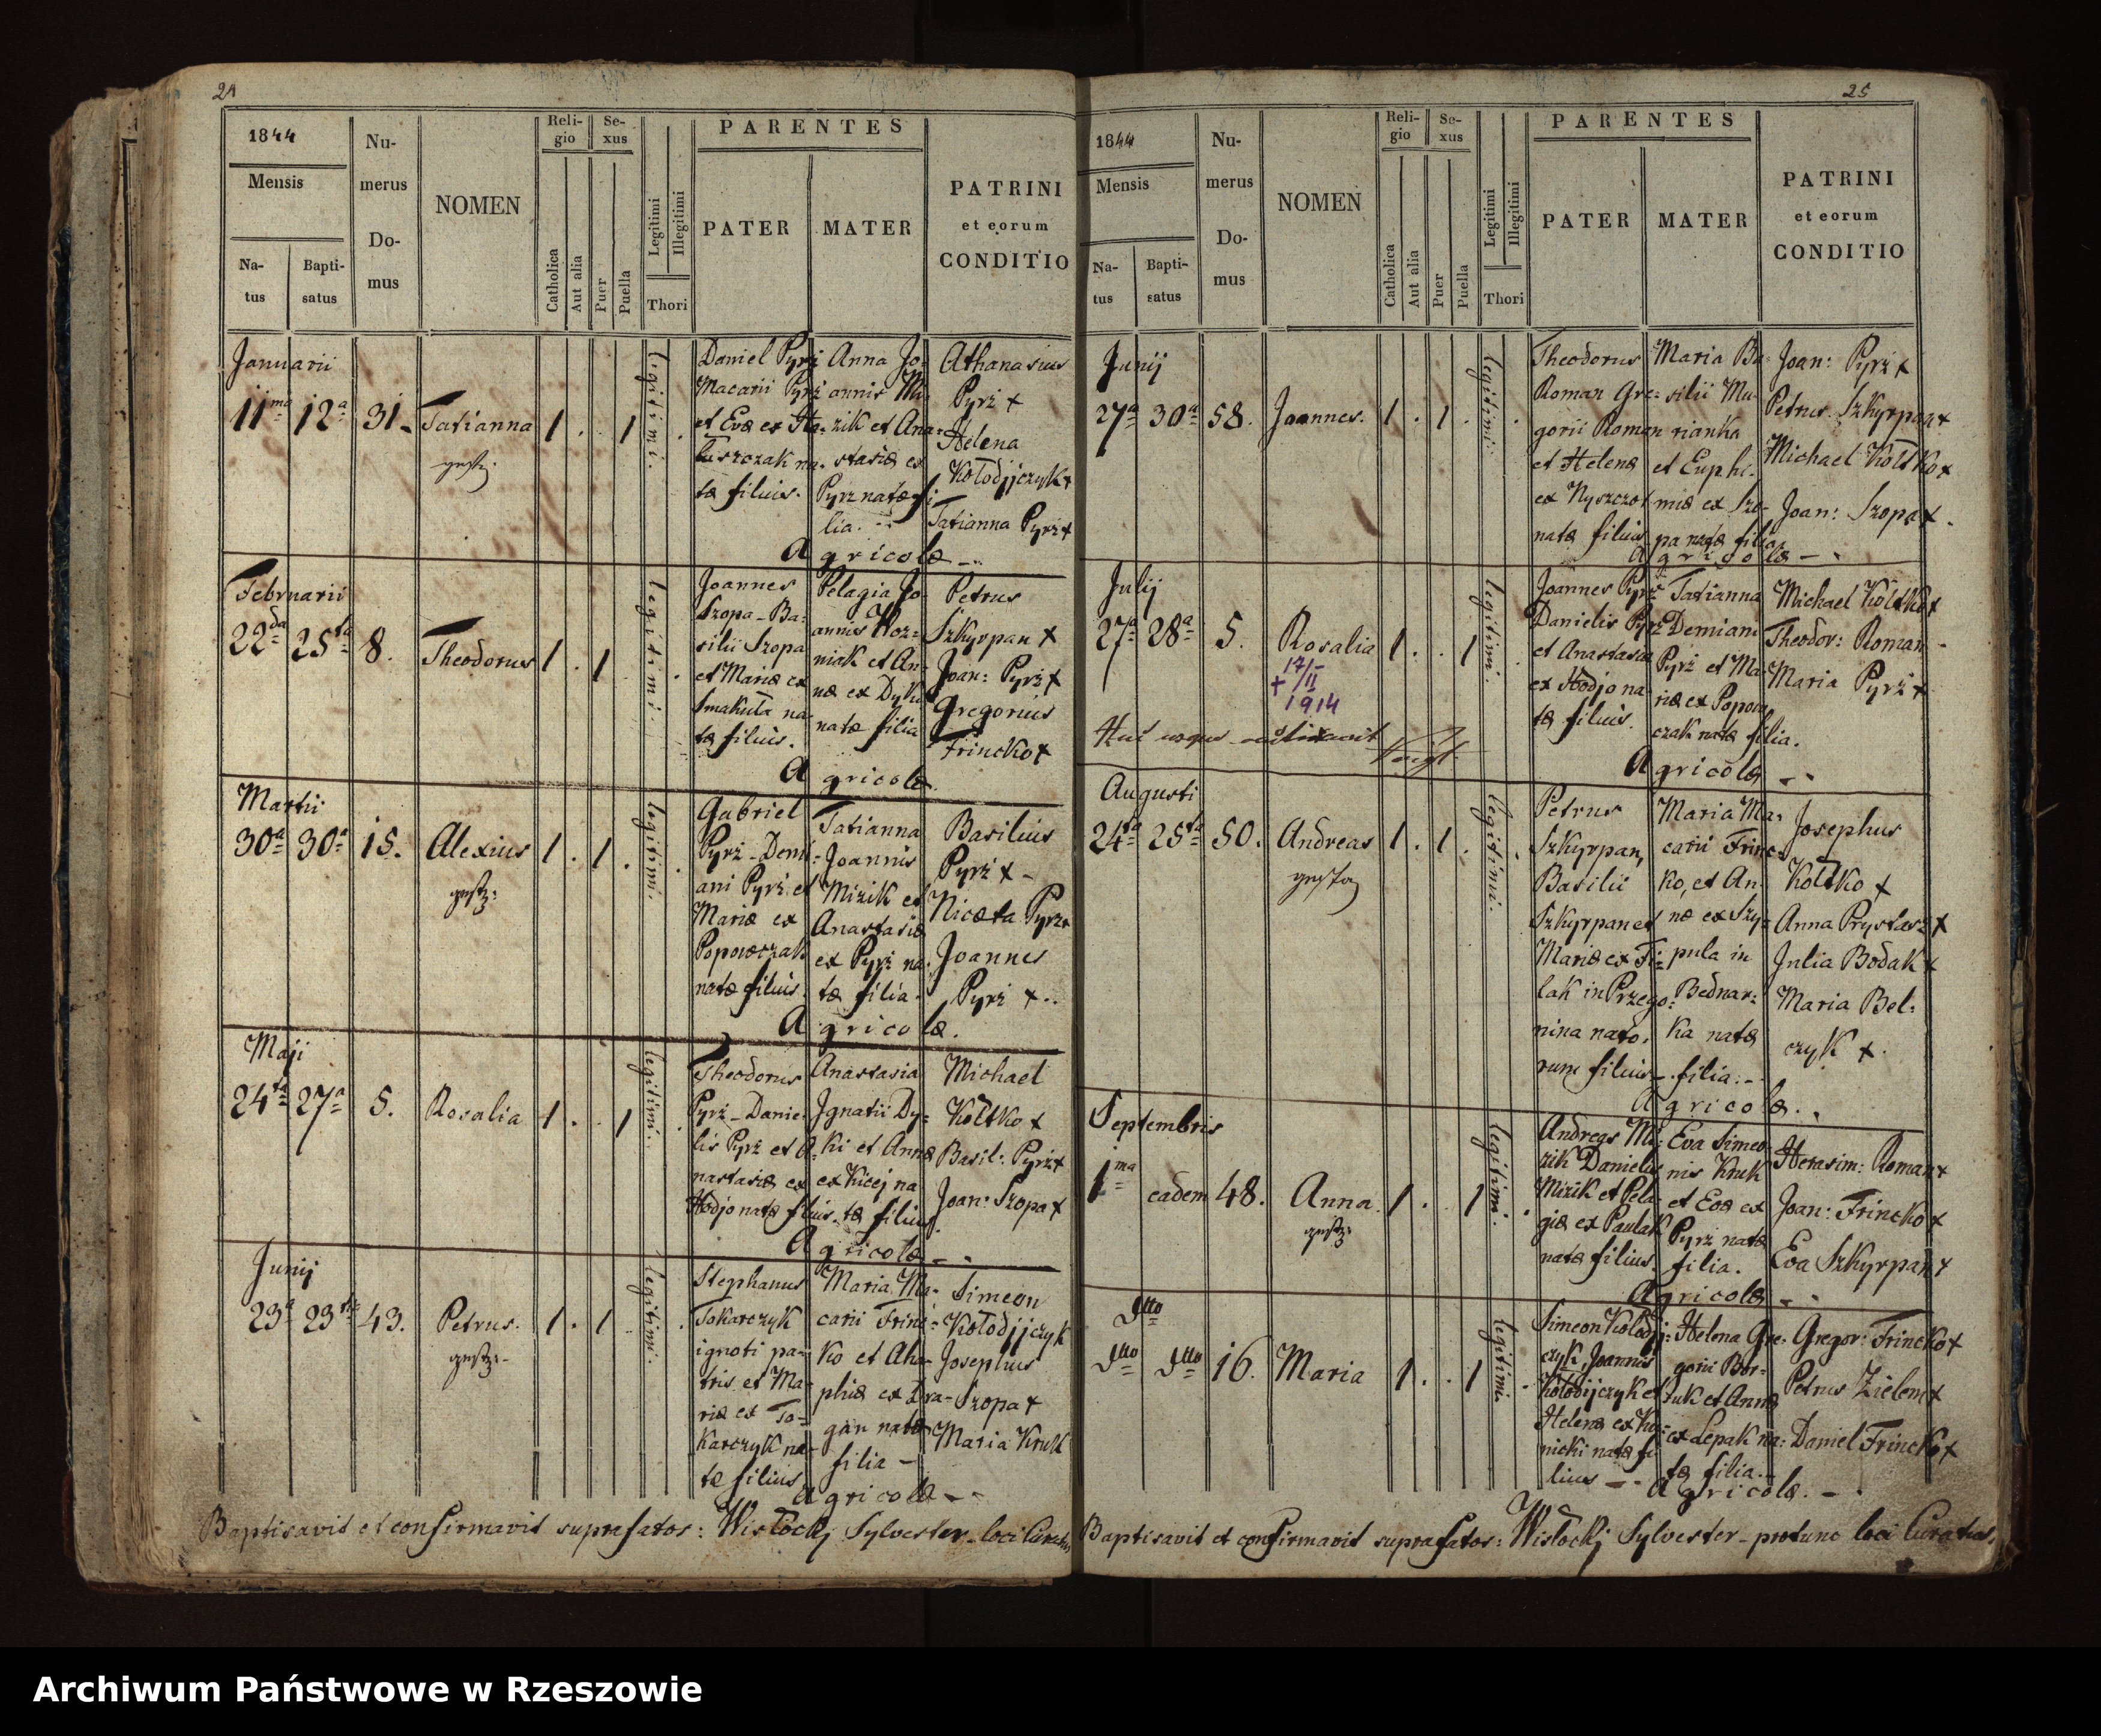 24
1844
Mensis
Na-
tus
Bapti-
satus
Nu-
merus
Do-
mus
NOMEN
Reli-
gio
Catholica
Aut alia
Se-
xus
Puer
Puella
Legitimi
Illegitimi
Thori
PARENTES
PATER
MATER
PATRINI
et eorum
CONDITIO
Januarii
11ma 12a 31. Tatianna 1 . . 1
legitimi.
Daniel Pyrż
Macarii Pyrż
et Evæ ex Ha-
łuszczak na-
tæ filius.
Anna Jo-
annis Mi-
zik et Ana-
stasiæ ex
Pyrz natæ fi-
lia.
Athanasius
Pyrż +
Helena
Kołodijczyk +
Tatianna Pyrż +
Agricolæ
Februarii
22da 25ta 8. Theodorus 1 . 1
legitimi.
Joannes
Szopa - Ba-
silii Szopa
et Mariæ ex
Smakuła na-
tæ filius.
Pelagia Jo-
annis Woz-
niak et An-
næ ex Dyki
natæ filia
Petrus
Szkyrpan +
Joan: Pyrż +
Gregorius
Frincko +
Agricolæ.
Martii
30a 30a 15. Alexius 1 . 1 .
legitimi.
Gabriel
Pyrż - Demi-
ani Pyrż et
Mariæ ex
Popowczak
natæ filius.
Tatianna
Joannis
Mizik et
Anastasiæ
ex Pyrż na-
tæ filia.
Basilius
Pyrż + -
Nicæta Pyrz +
Joannes
Pyrż + ..
Agricolæ.
Maji
24ta 27a 5. Rosalia 1 . . 1
legitimi.
Theodorus
Pyrż - Danie-
lis Pyrż et A-
nastasiæ ex
Hodjo natæ filius.
Anastasia
Ignatii Dy-
ki et Annæ
ex Kicej na
tæ filius
Michael
Kołtko +
Basil: Pyrż +
Joan: Szopa +
Agricolæ
Junij
23a 23tia 43. Petrus. 1 . 1
legitimi.
Stephanus
Tokarczyk
ignoti pa-
tris et Ma-
riæ ex To-
karczyk na-
tæ filius
Maria Ma-
carii Frinc-
ko et Aha-
phiæ ex Dra-
gan natæ
filia -
Simeon
Kołodijczyk
Josephus
Szopa +
Maria Kruk
Agricolæ
Baptisavit et confirmavit suprafatos: Wisłockj Sylvester - loci Curatus
25
1844
Mensis
Na-
tus
Bapti-
satus
Nu-
merus
Do-
mus
NOMEN
Reli-
gio
Catholica
Aut alia
Se-
xus
Puer
Puella
Legitimi
Illegitimi
Thori
PARENTES
PATER
MATER
PATRINI
et eorum
CONDITIO
Junij
27a 30a 58. Joannes. 1 . 1 .
legitimi.
Theodorus
Roman Gre-
gorii Roman
et Helenæ
ex Nyszczot
natæ filius
Maria Ba-
silii Mu-
rianka
et Euphi-
miæ ex Szo-
pa natæ filia
Joan: Pyrż +
Petrus. Szkyrpan +
Michael Kołtko +
Joan: Szopa +
Agricolæ -
Julij
27a 28a 5. Rosalia 1 . . 1
17/II
+ 1914
legitimi.
Joannes Pyrż
Danielis Pyrż
et Anastasiæ
ex Hodjo na-
tæ filius.
Tatianna
Demiani
Pyrż et Ma-
riæ ex Popow-
czak natæ filia.
Michael Kołtko +
Theodor: Roman
Maria Pyrż +
Huc usque
Agricolæ
Augusti
24ta 25ta 50. Andreas 1 . 1 .
legitimi.
Petrus
Szkyrpan,
Basilii
Szkyrpan et
Mariæ ex Fi-
lak in Przego-
nina nato-
rum filius -
Maria Ma-
carii Frinc-
ko, et An-
næ ex Szy-
pula in
Bednar-
ka natæ
filia. -
Josephus
Kołtko +
Anna Prystasz +
Julia Bodak +
Maria Bel-
czyk +.
Agricolæ.
Septembris
1ma eadem 48. Anna. 1 . . 1
legitimi.
Andreas Mi-
zik Danielis
Mizik et Pela-
giæ ex Paulak
natæ filius.
Eva Simeo-
nis Kruk
et Evæ ex
Pyrż natæ
filia.
Herasim: Roman +
Joan: Frincko +
Eva Szkyrpan +
Agricolæ
dtto
dtto dtto 16. Maria 1 . . 1
legitimi.
Simeon Kołodij-
czyk, Joannis
Kołodijczyk et
Helenæ ex Ku-
nicki natæ fi-
lius -
Helena Gre-
gorii Bor-
suk et Annæ
ex Lepak na-
tæ filia. -
Gregor: Frincko +
Petrus Zielem +
Daniel Frincko +
Agricolæ. -
Baptisavit et confirmavit suprafatos: Wisłockj Sylvester - protunc loci Curatus.
Archiwum Państwowe w Rzeszowie